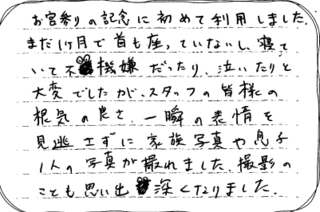 お宮参りの記念に初めて利用しました。
まだ1ヶ月で首も座っていないし、寝て
いて不機嫌だったり、泣いたりと
大変でしたが、スタッフの皆様の
根気の良さ、一瞬の表情を
見逃さずに家族写真や息子
1人の写真が撮れました。撮影の
ことも思い出深くなりました。